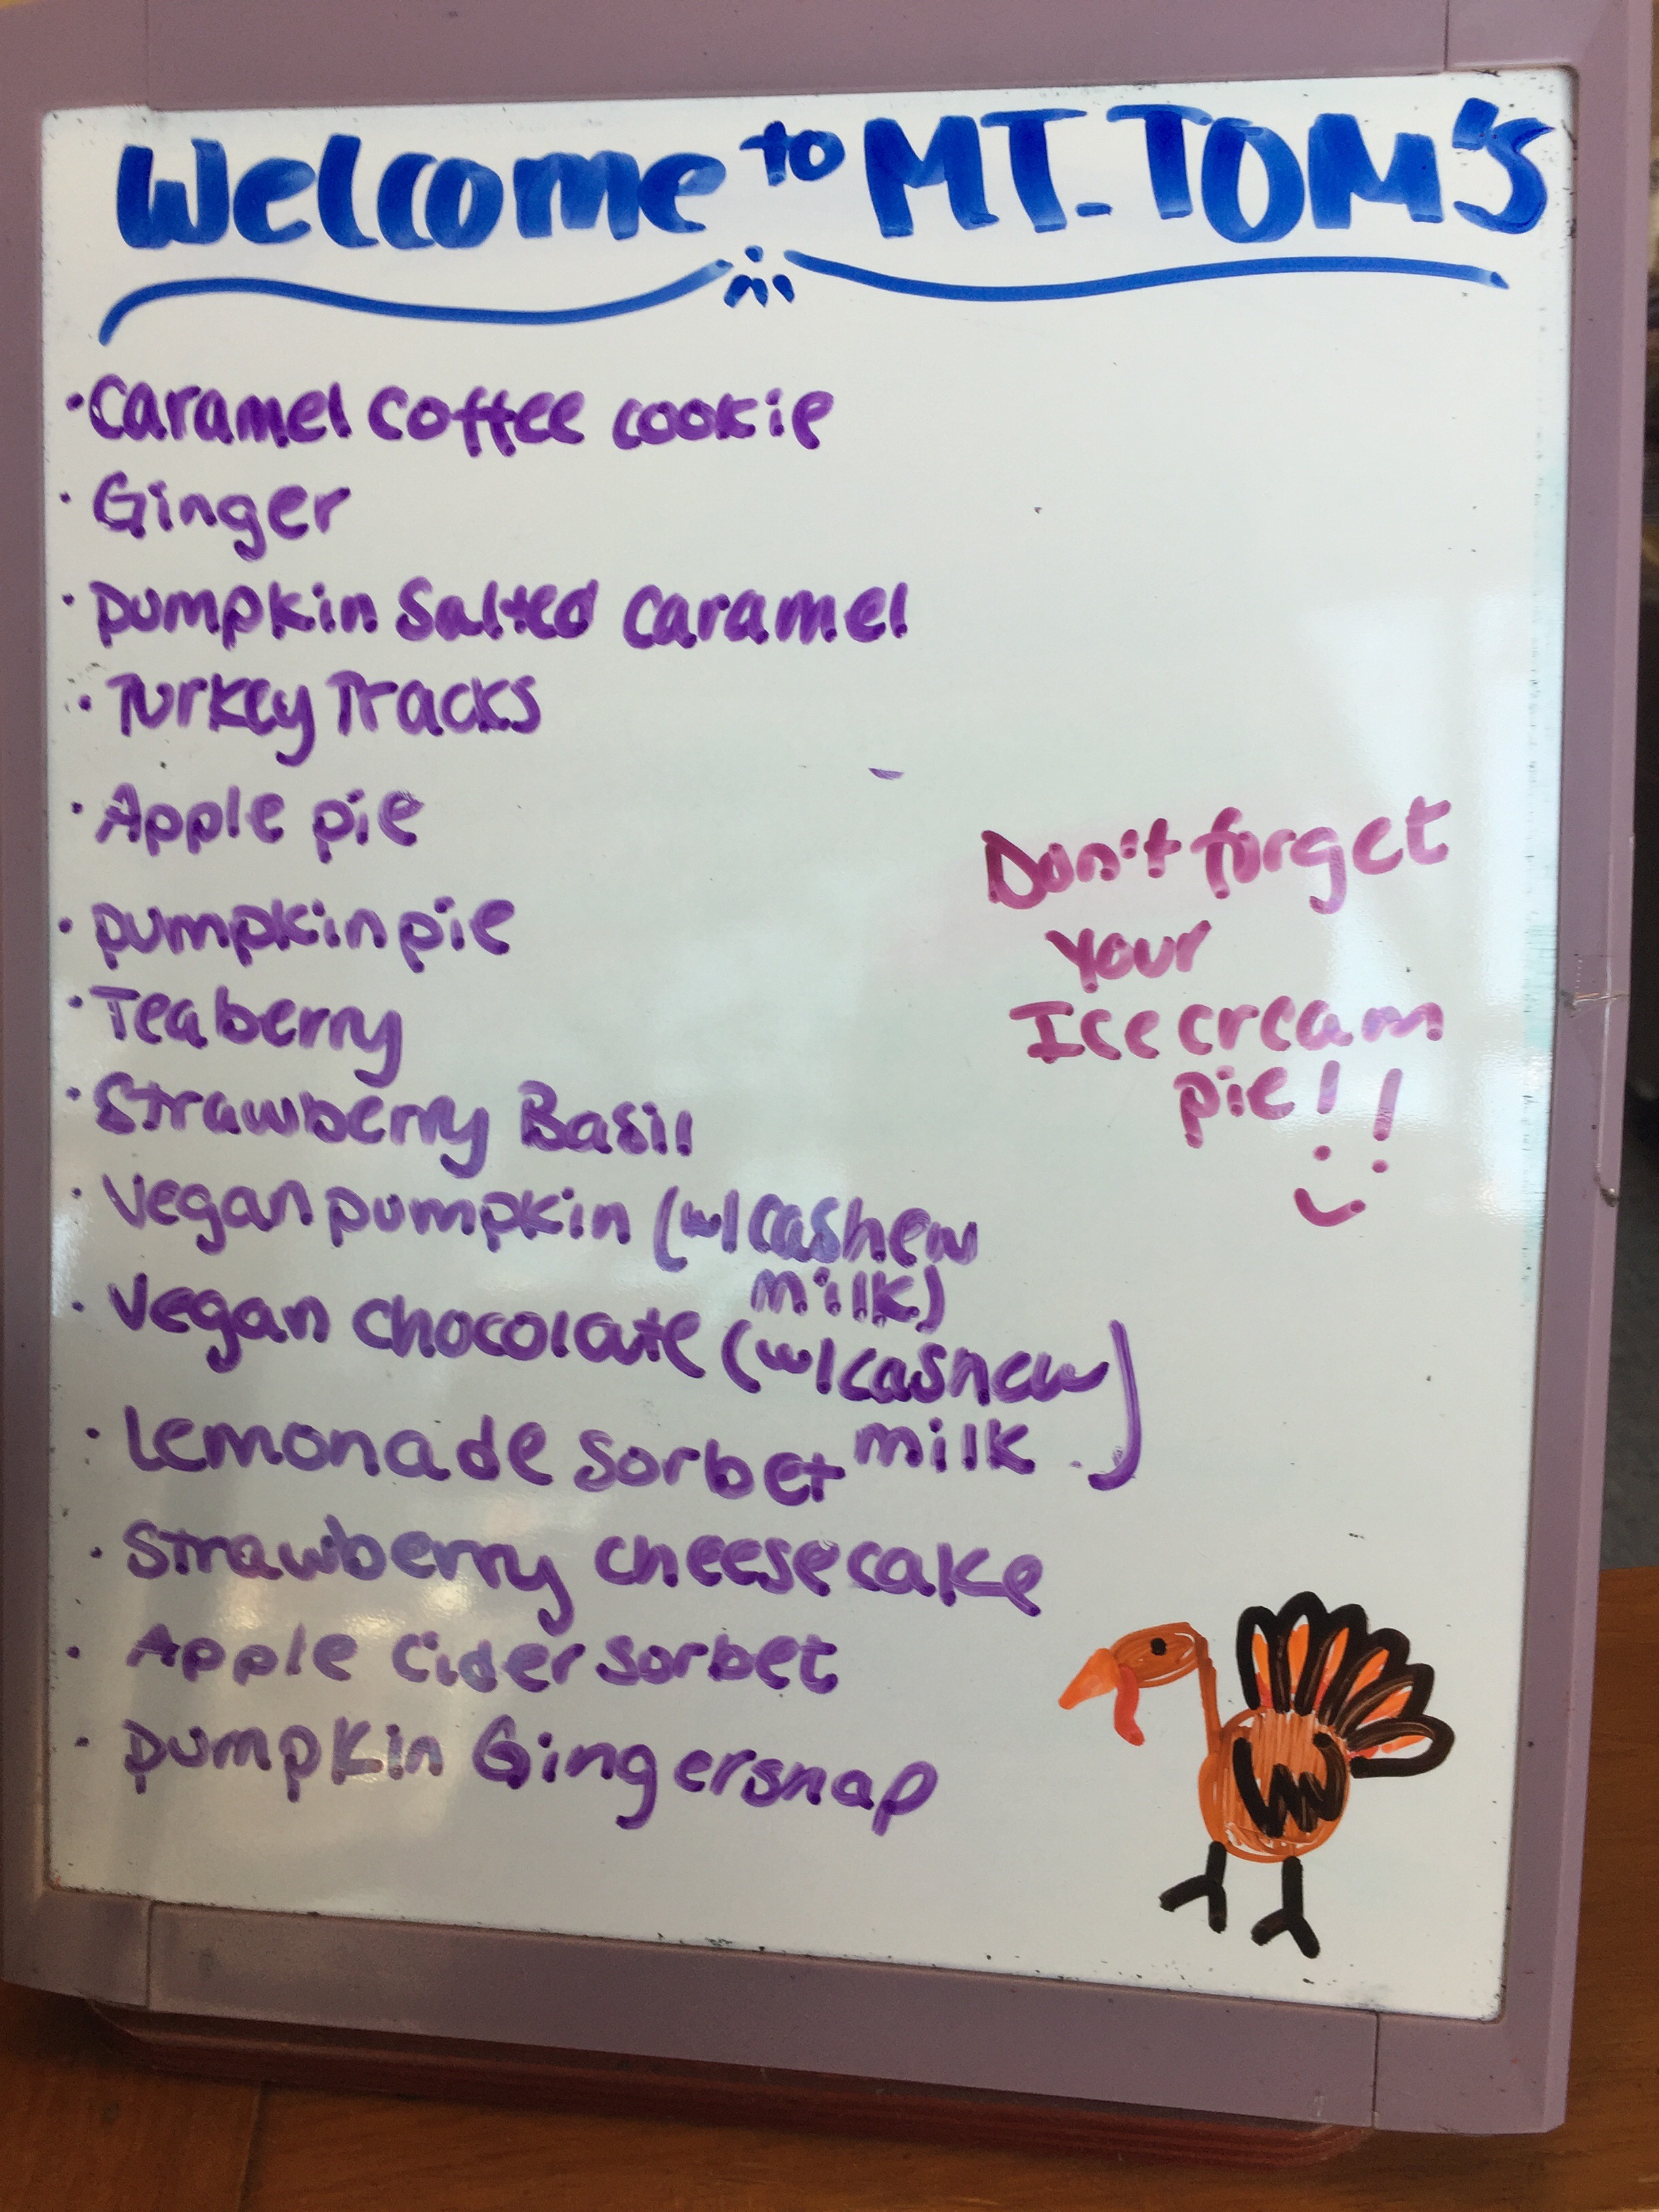 Welcome to MT. TOM'S
• Caramel Coffee cookie
• Ginger
• pumpkin Salted Caramel
• Turkey Tracks
• Apple pie
• pumpkin pie
• Teaberry
• Strawberry Basil
• Vegan pumpkin (w/cashew
milk)
• Vegan chocolate (w/cashew
milk)
• Lemonade sorbet
• Strawberry cheesecake
• Apple Cider sorbet
• pumpkin Gingersnap
Don't forget
your
Ice cream
pie!!